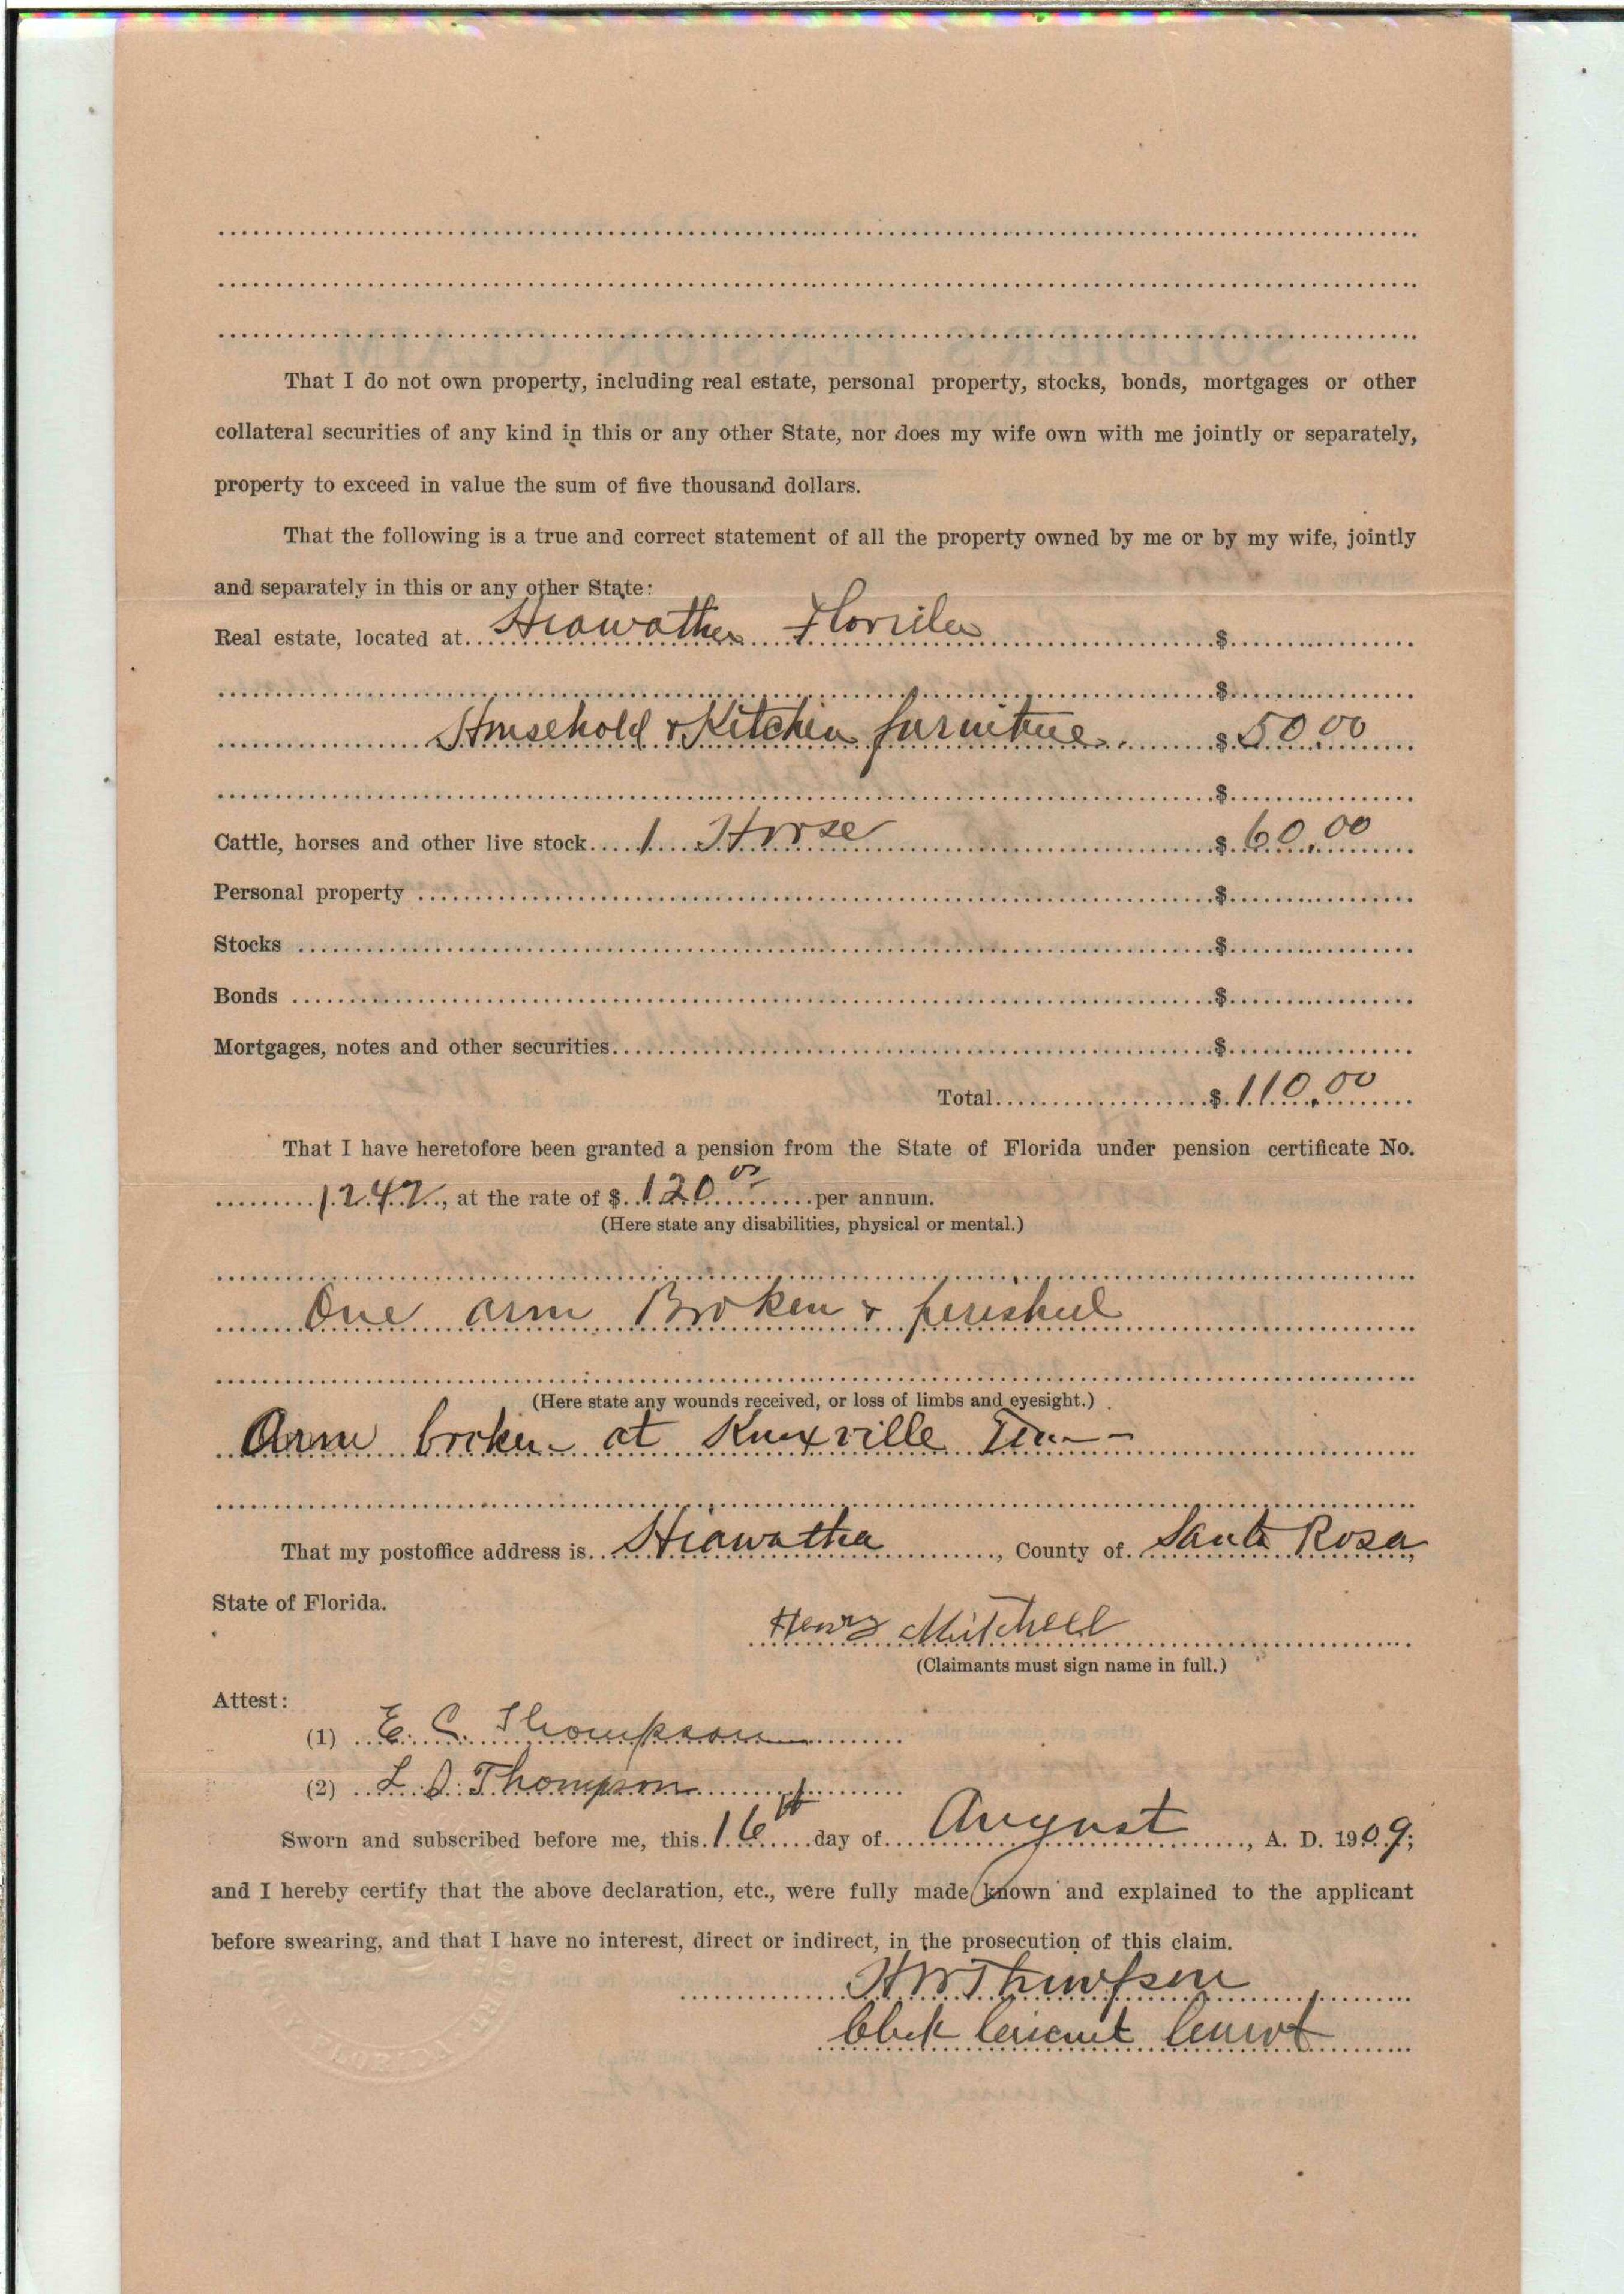 That I do not own property, including real estate, personal property, stocks, bonds, mortgages or other
collateral securities of any kind in this or any other State, nor does my wife own with me jointly or separately,
property to exceed in value the sum of five thousand dollars.
That the following is a true and correct statement of all the property owned by me or by my wife, jointly
and separately in this or any other State:
Real estate, located at Hiawatha Florida $
$
Household & Kitchen furniture $ 50.00
$
Cattle, horses and other live stock 1 Horse $ 60.00
Personal property $
Stocks $
Bonds $
Mortgages, notes and other securities $
Total $ 110.00
That I have heretofore been granted a pension from the State of Florida under pension certificate No.
1242, at the rate of $ 120 00 per annum.
(Here state any disabilities, physical or mental.)
One arm Broken & perished
(Here state any wounds received, or loss of limbs and eyesight.)
Arm broken at Knoxville Ten
That my postoffice address is Hiawatha, County of Santa Rosa,
State of Florida.
Henry Mitchell
(Claimants must sign name in full.)
Attest:
(1) E. C. Thompson
(2) L. D. Thompson
Sworn and subscribed before me, this 16th day of August, A. D. 1909;
and I hereby certify that the above declaration, etc., were fully made known and explained to the applicant
before swearing, and that I have no interest, direct or indirect, in the prosecution of this claim.
H W Thompson
Clerk Circuit Court